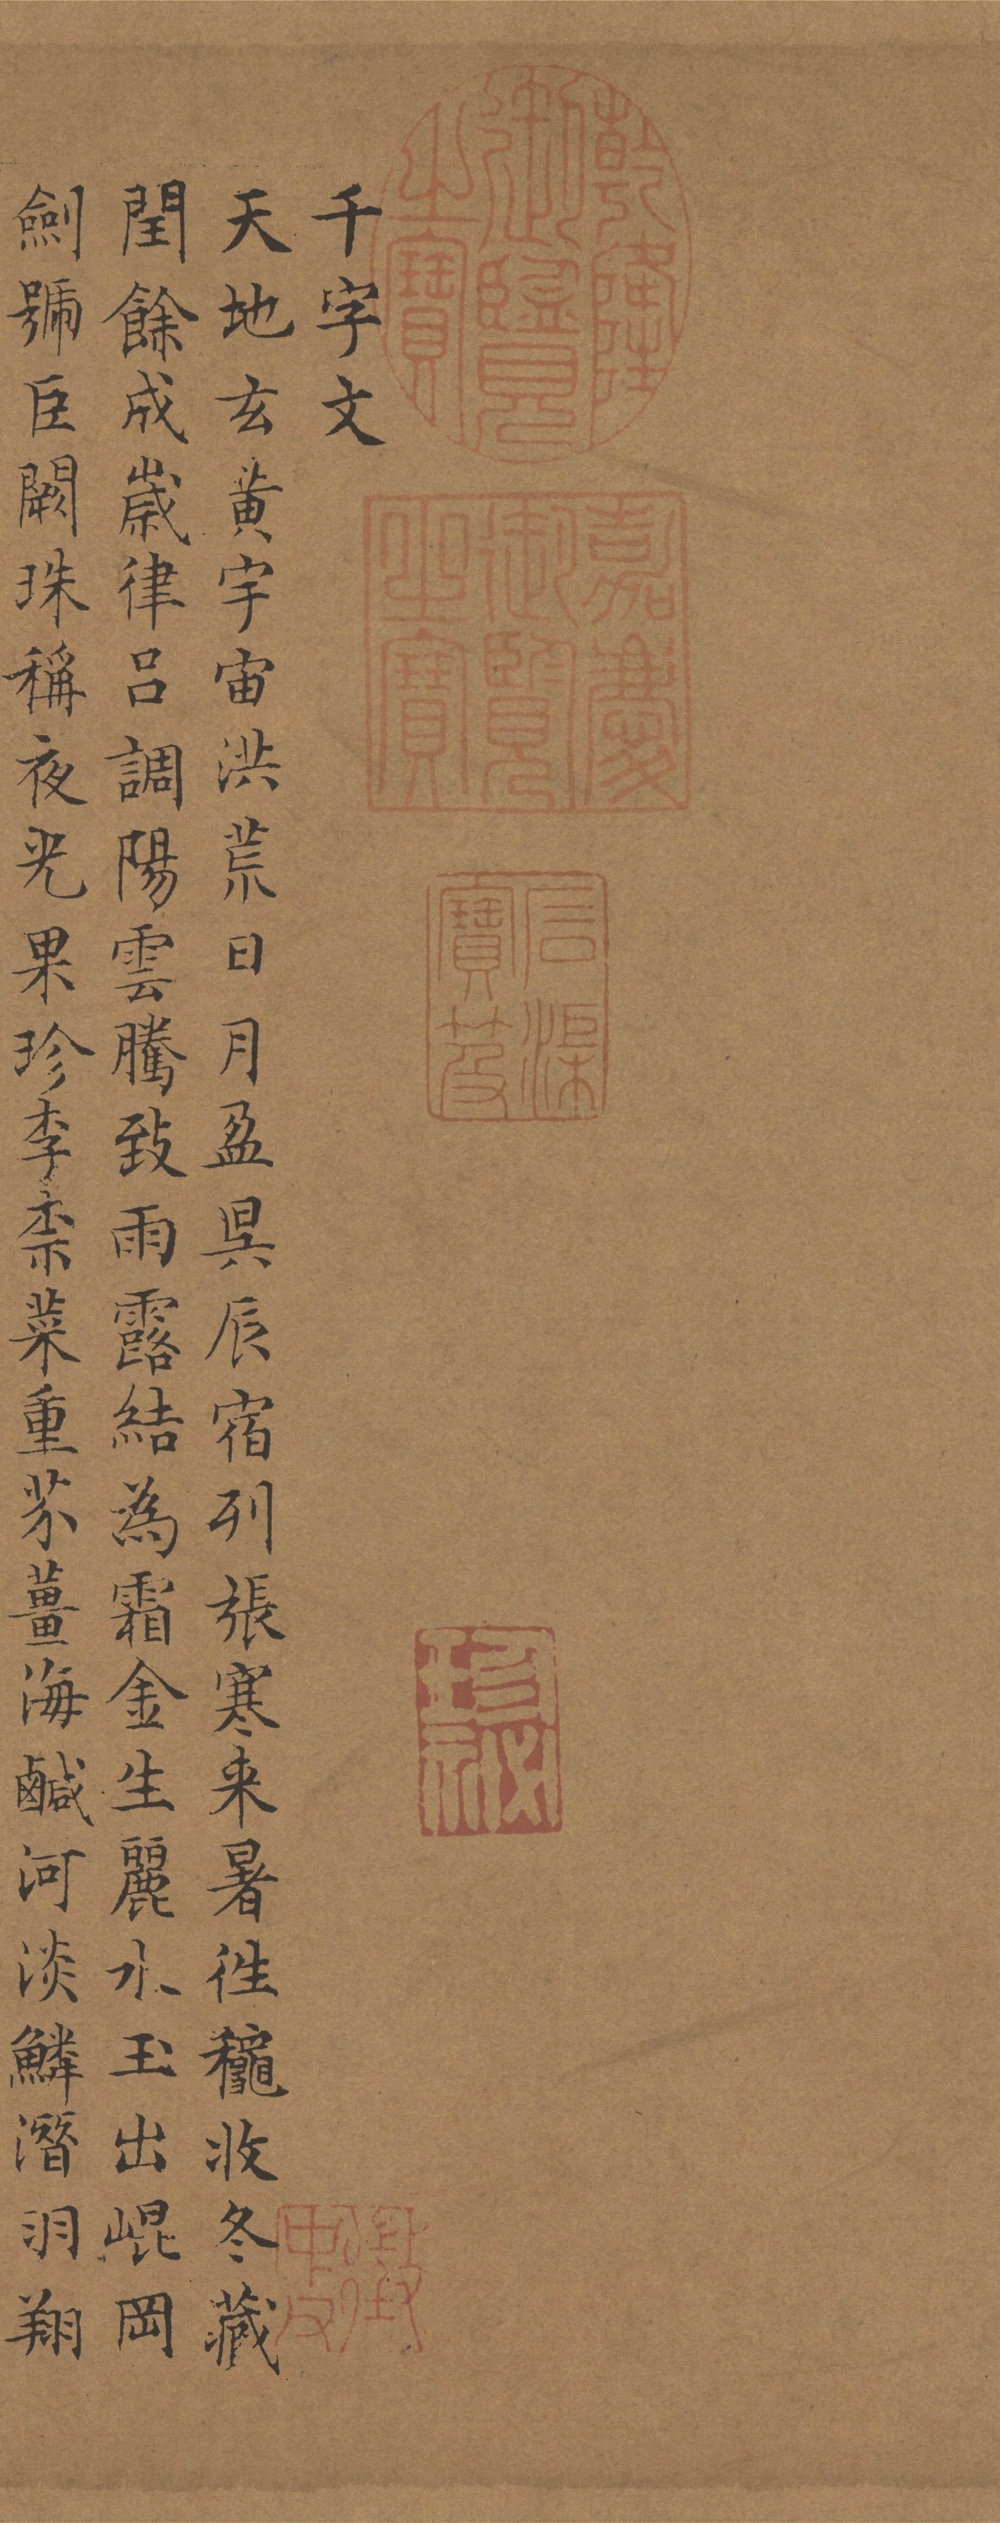 乾隆御覽之寶
嘉慶御覽之寶
石渠寶笈
珍秘
千字文
天地玄黃宇宙洪荒日月盈昃辰宿列張寒来暑往龝收冬藏
閏餘成歲律呂調陽雲騰致雨露結為霜金生麗水玉出崐岡
劍號巨闕珠稱夜光果珍李柰菜重芥薑海鹹河淡鱗潛羽翔